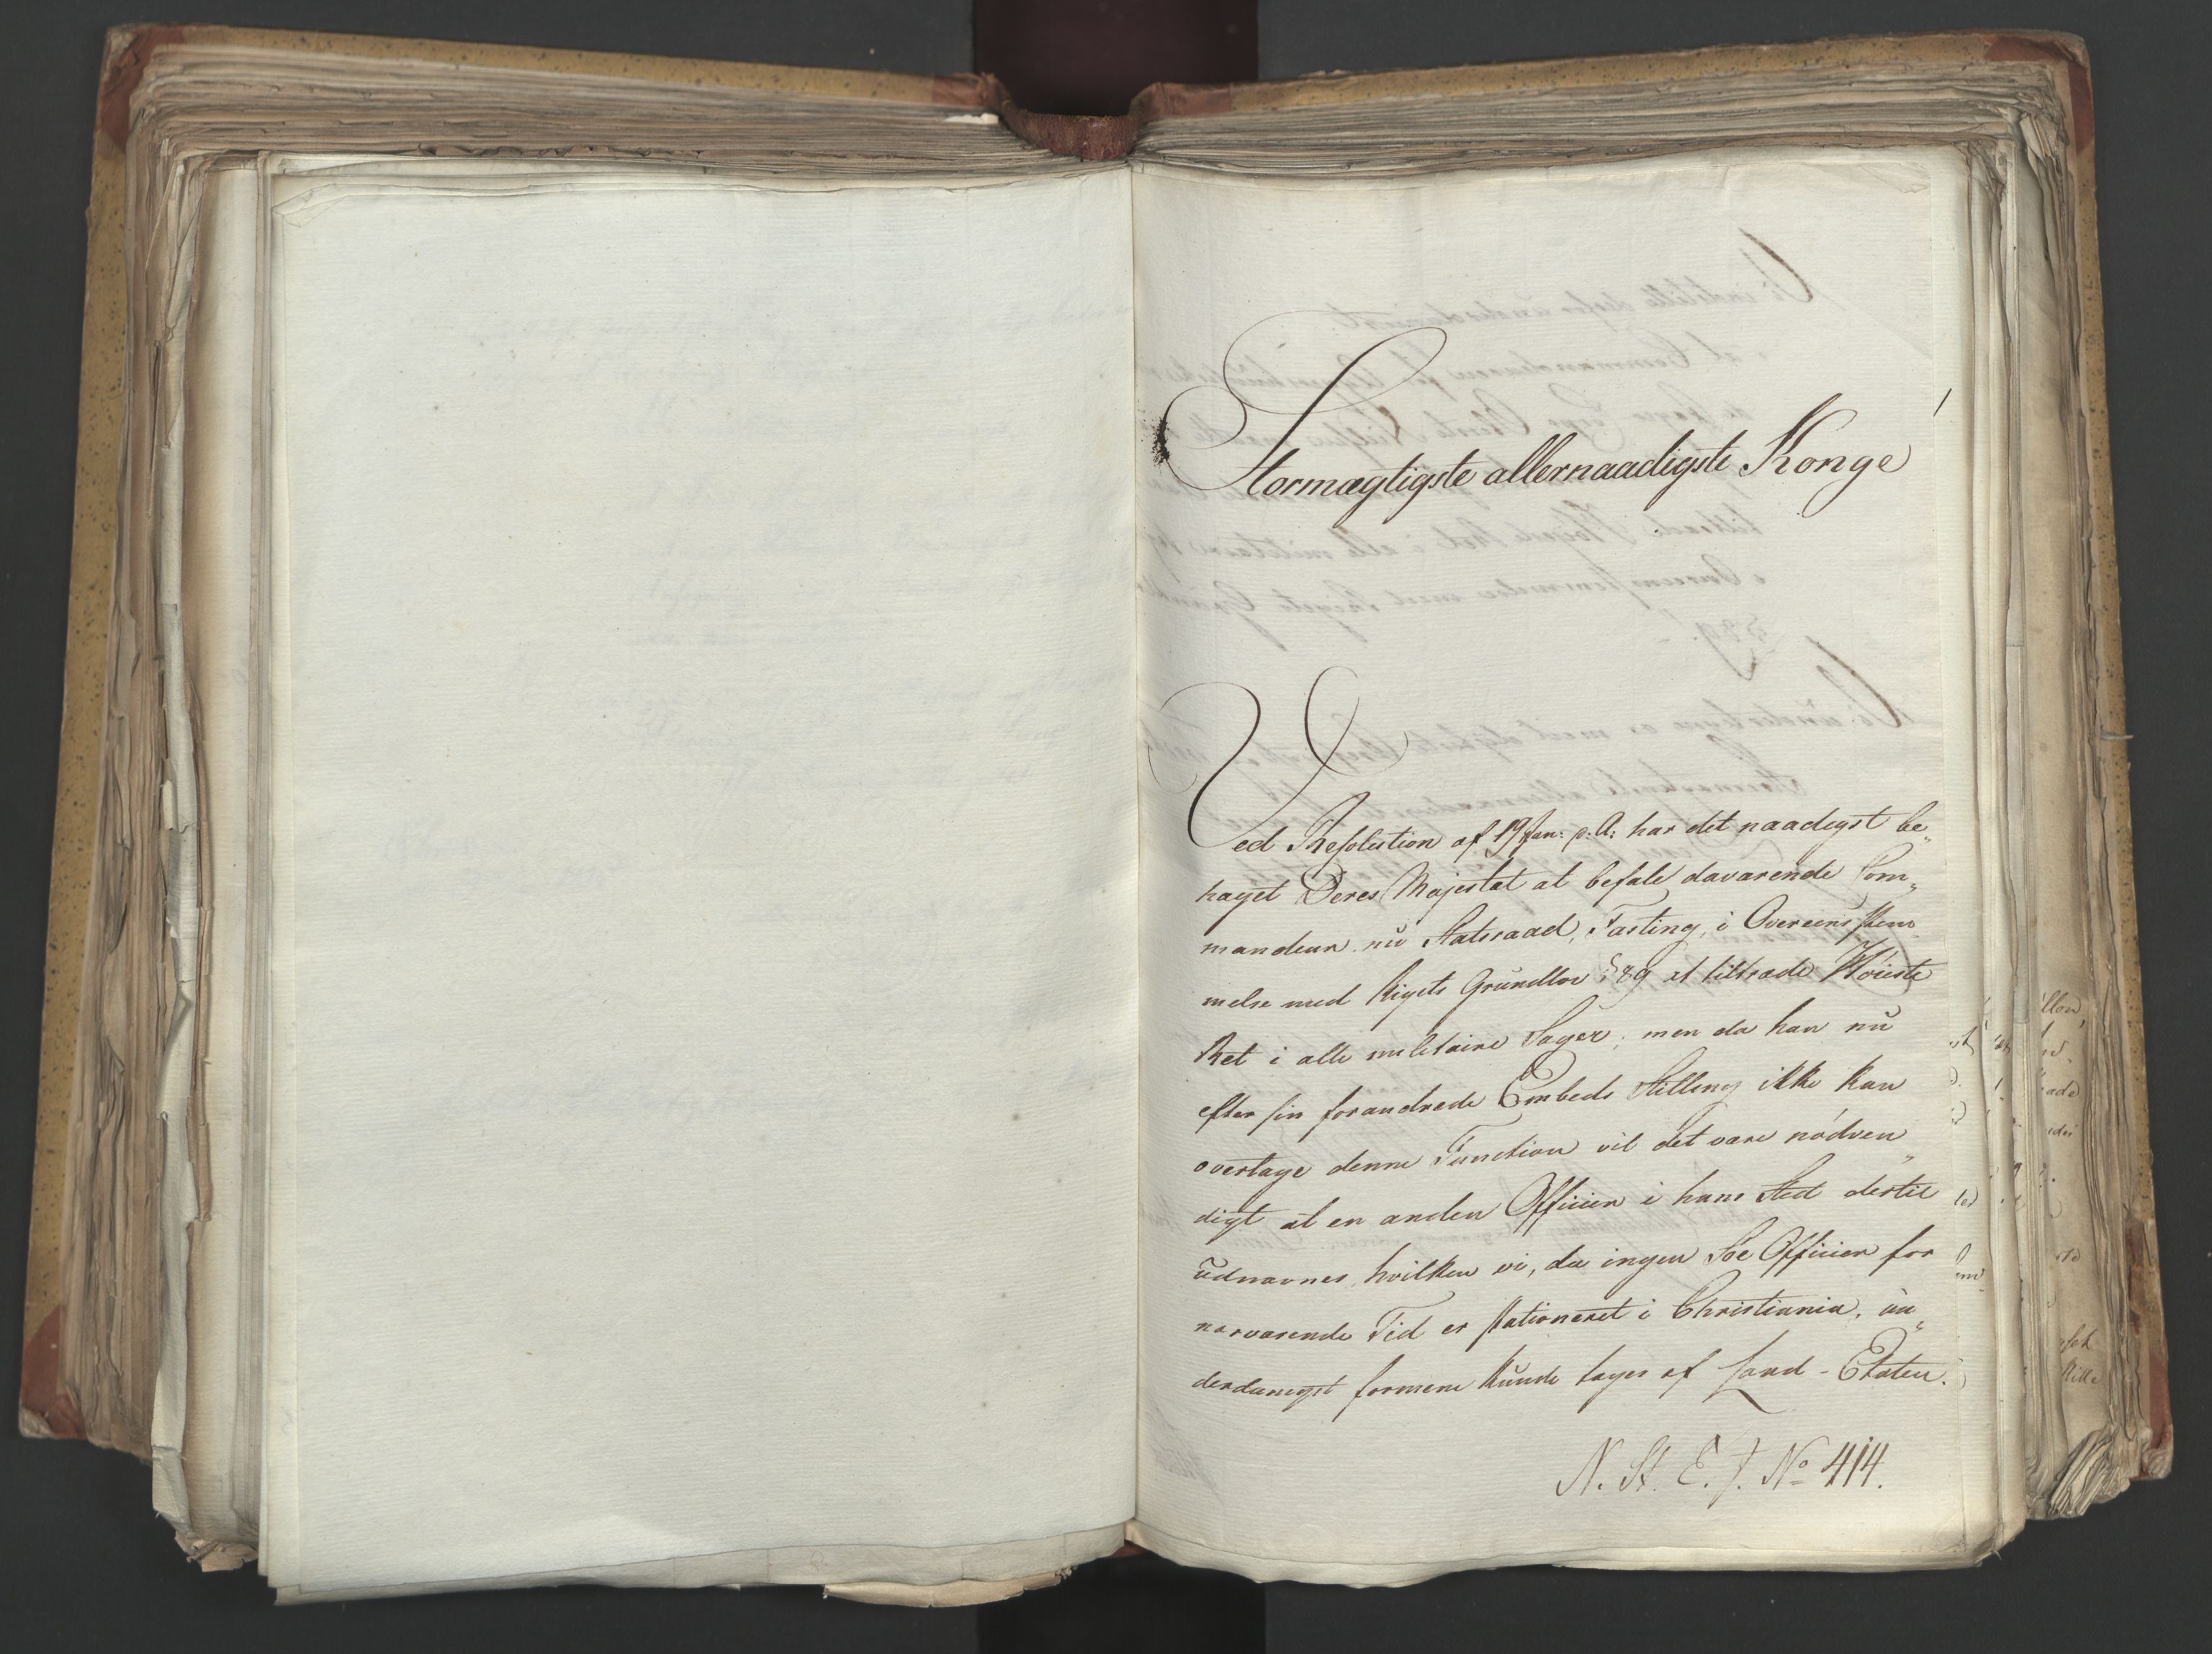 Stormægtigste allernaadigste Konge
Ved Resolution af 19 Jan: p: A: har det naadigst be„
haget Deres Majestæt at befale daværende Com„
mandeur nu Statsraad, Fasting, i Overeensstem„
melse med Rigets Grundlov § 89 at tiltræde Høieste
Ret i alle militaire Sager; men da han nu
efter sin forandrede Embeds Stilling ikke kan
overtage denne Function vil det være nødven„
digt at en anden Officier i hans Sted dertil
udnævnes, hvilken vi, da ingen Søe Officier for
nærværende Tid er stationeret i Christiania, un„
derdanigst formene kunde tages af Land-Etaten.
N. St. E. J. No 414.